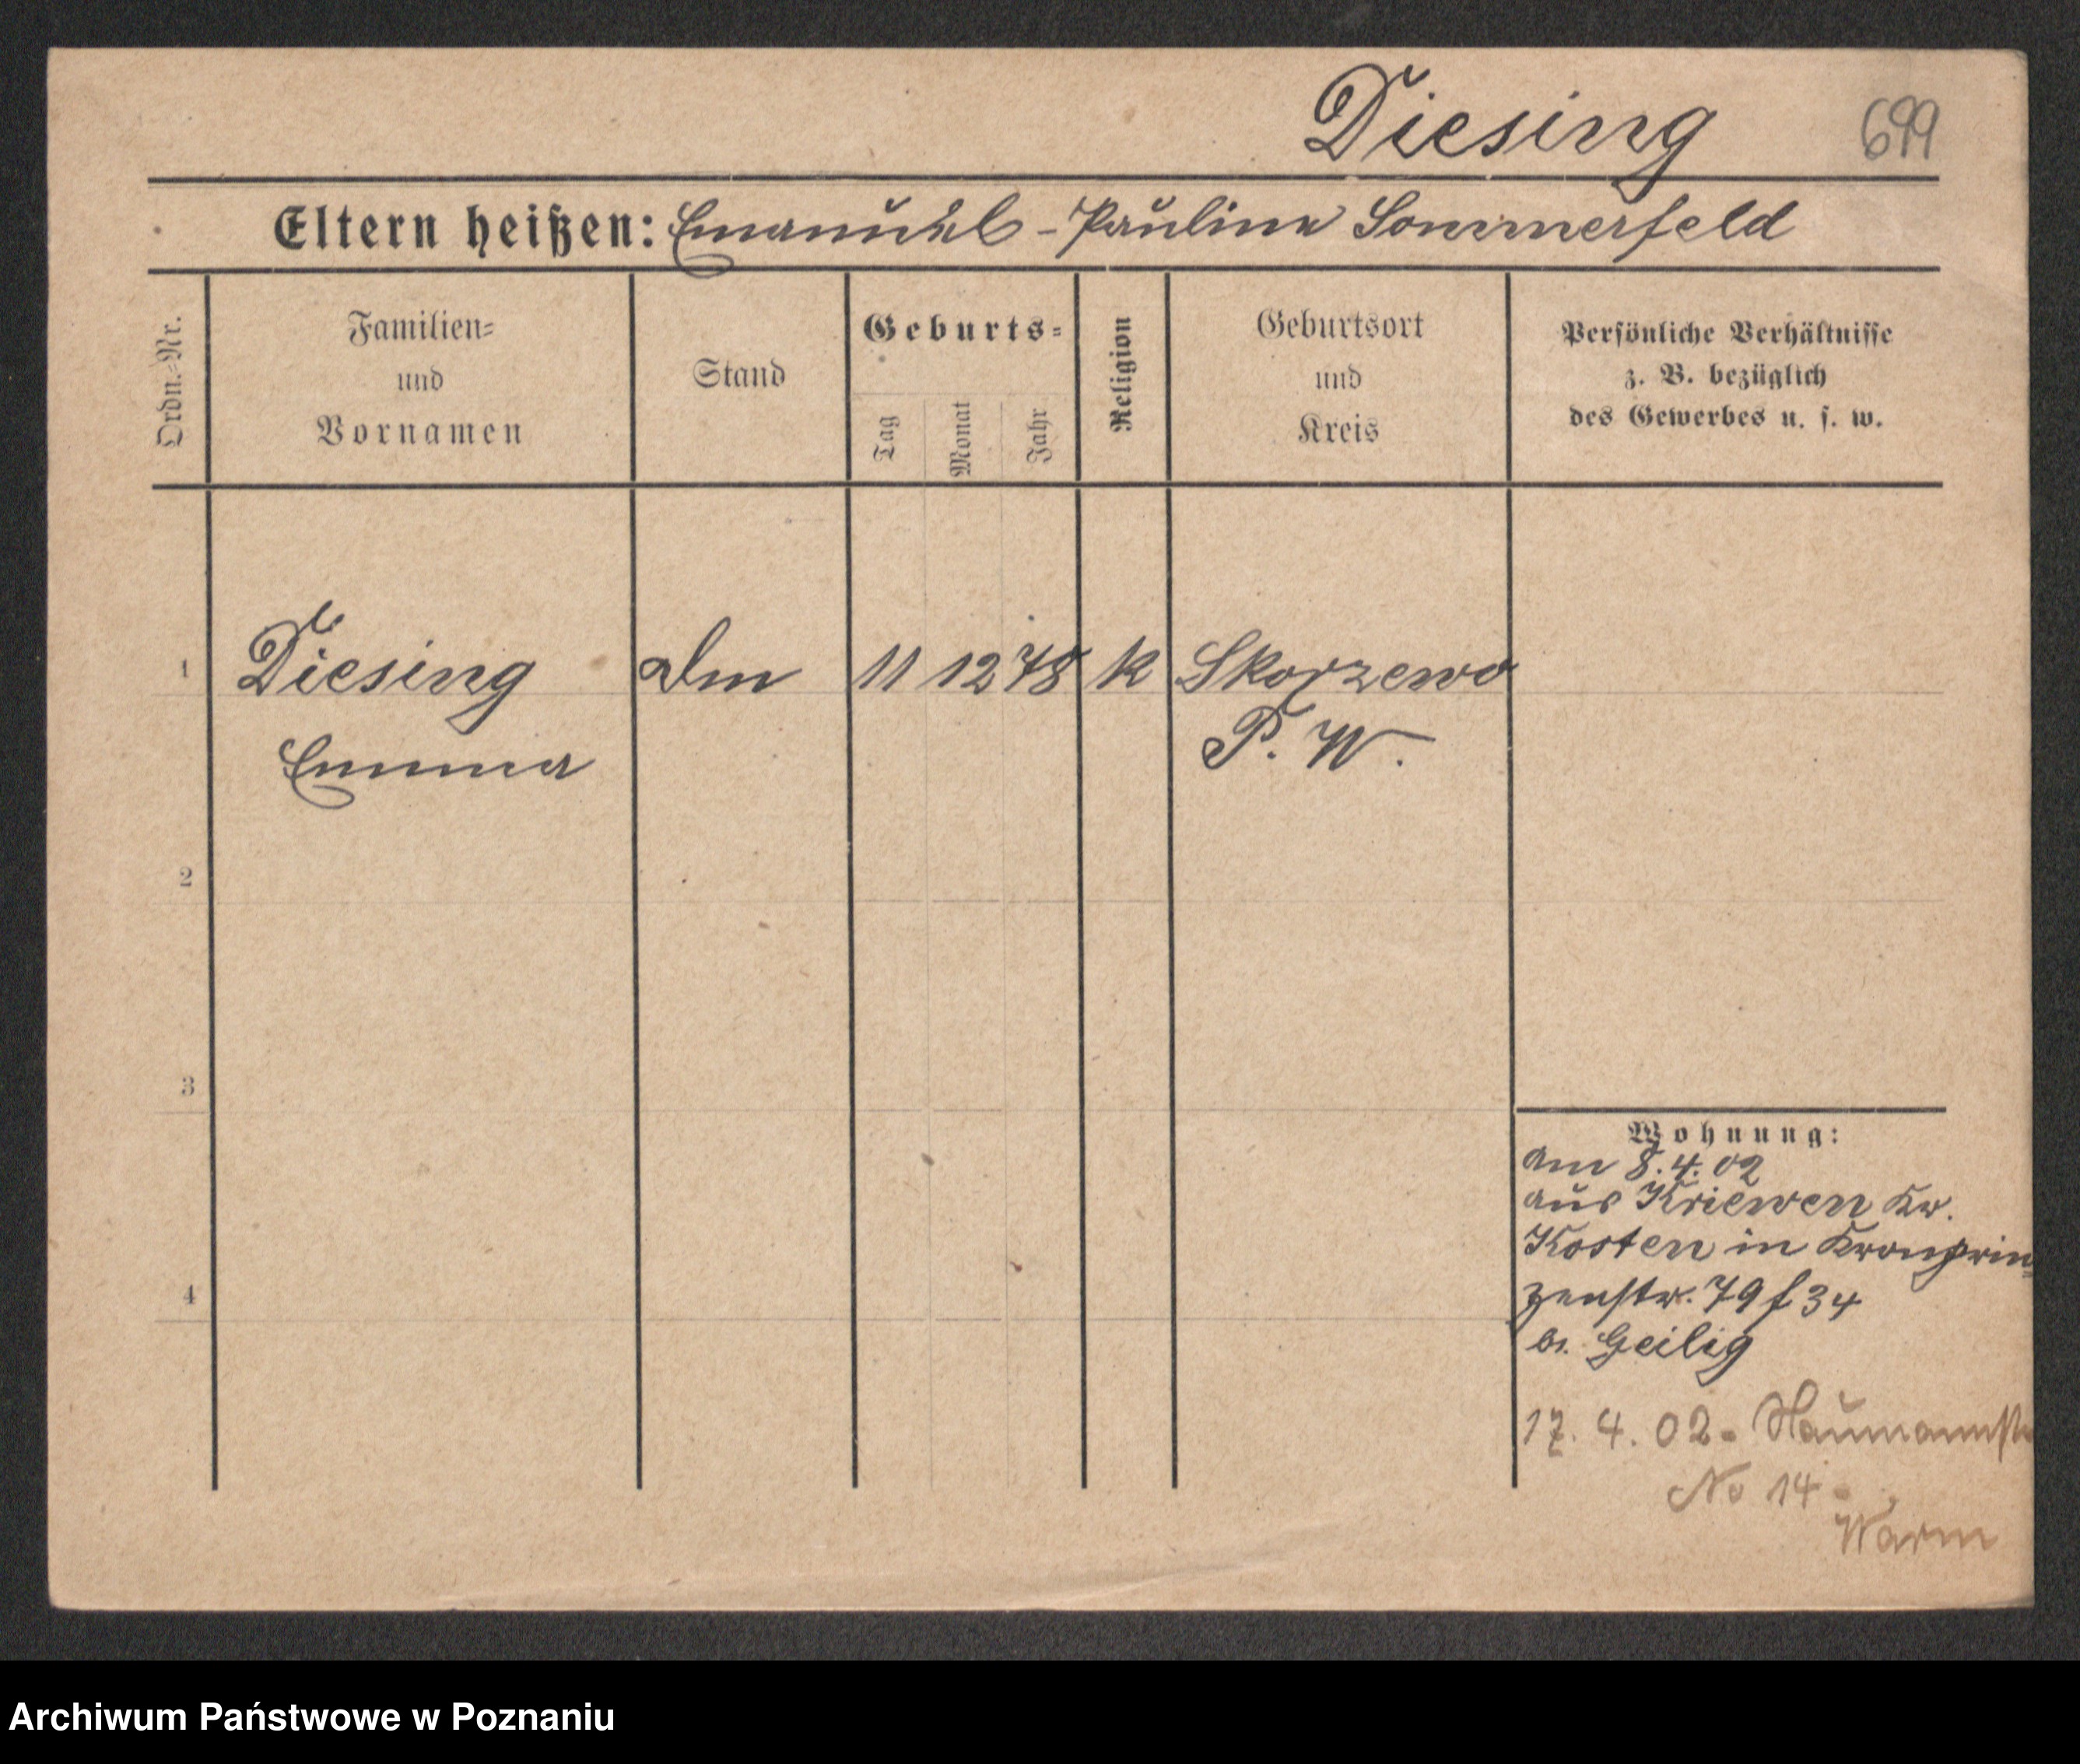 Diesing 699
Eltern heißen: Emanuel - Pauline Sommerfeld
Ordn.-Nr.
Familien-
und
Vornamen
Stand
Geburts-
Tag
Monat
Jahr
Religion
Geburtsort
und
Kreis
Persönliche Verhältnisse
z. B. bezüglich
des Gewerbes u. s. w.
1 Diesing 11 12 78 k Skorzewo
Emma P. W.
2
3
4
Wohnung:
am 8.4.02
aus Kriewen Kr.
Kosten in Kronprin-
zenstr. 79 f 34
b. Geilig
17. 4. 02 - Naumannstr
No 14 -
Warm
Archiwum Państwowe w Poznaniu